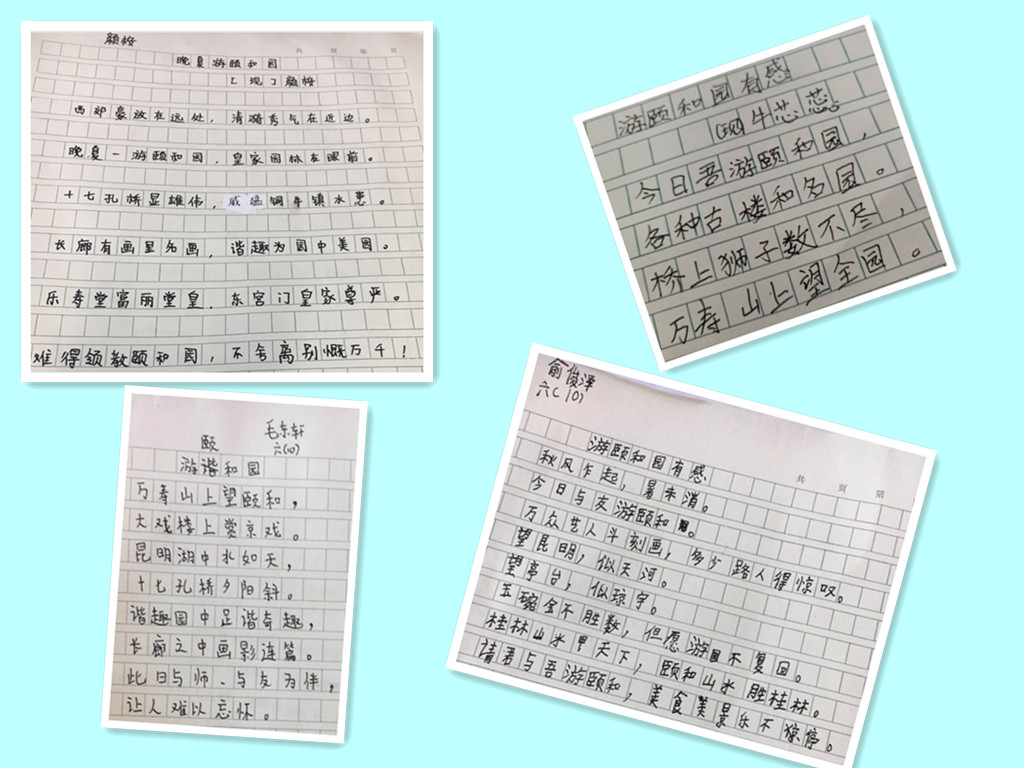 颜桉
共 页 第 页
晚夏游颐和园
［现］颜桉
西郊豪放在远处，清漪秀气在近边。
晚夏一游颐和园，皇家园林在眼前。
十七孔桥显雄伟，威猛铜牛镇水患。
长廊有画里外画，谐趣为园中美园。
乐寿堂富丽堂皇，东宫门皇家尊严。
难得领教颐和园，不舍离别慨万千！
游颐和园有感
(现)牛芯蕊。
今日吾游颐和园，
各种古楼和名园。
桥上狮子数不尽，
万寿山上望全园。
毛东轩
六(10)
颐
游谐和园
万寿山上望颐和，
大戏楼上赏京戏。
昆明湖中水如天，
十七孔桥夕阳斜。
谐趣园中足谐奇趣，
长廊之中画影连篇。
此日与师、与友为伴，
让人难以忘怀。
俞俊泽
六(10)
共 页 第
游颐和园有感
秋风乍起，暑未消。
今日与友游颐和园。
万众艺人斗刻画，多少路人得惊叹。
望昆明，似天河。
望亭台，似琼宇。
玉碗金不胜数，但愿游园不复回。
桂林山水甲天下，颐和山水胜桂林。
请君与吾游颐和，美食美景乐不停。